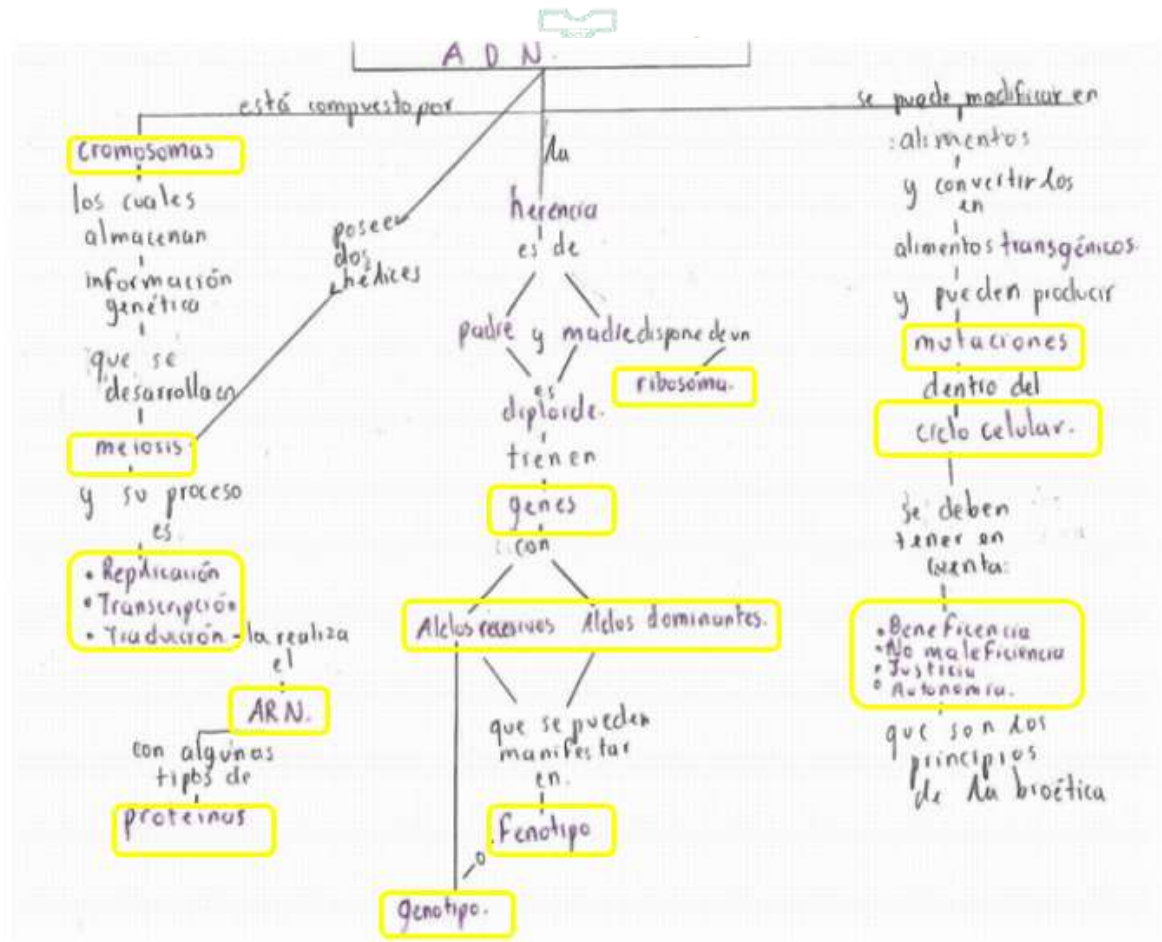 ADN.
está compuesto por
cromosomas
los cuales
almacenan
información
genética
que se
desarrolla en
meiosis.
y su proceso
es
• Replicación
• Transcripción
• Traducción - la realiza
el
ARN.
con algunos
tipos de
proteínas
poseer
dos
hélices
la
herencia
es de
padre y madre dispone de un
ribosoma.
es
diploide.
tienen
genes
con
Alelos recesivos Alelos dominantes.
que se pueden
manifestar
en.
Fenotipo
o
genotipo.
se puede modificar en
alimentos
y convertirlos
en
alimentos transgénicos.
y pueden producir
mutaciones
dentro del
ciclo celular.
se deben
tener en
cuenta:
• Beneficencia
• No maleficiencia
• Justicia
• Autonomía.
que son los
principios
de la bioética